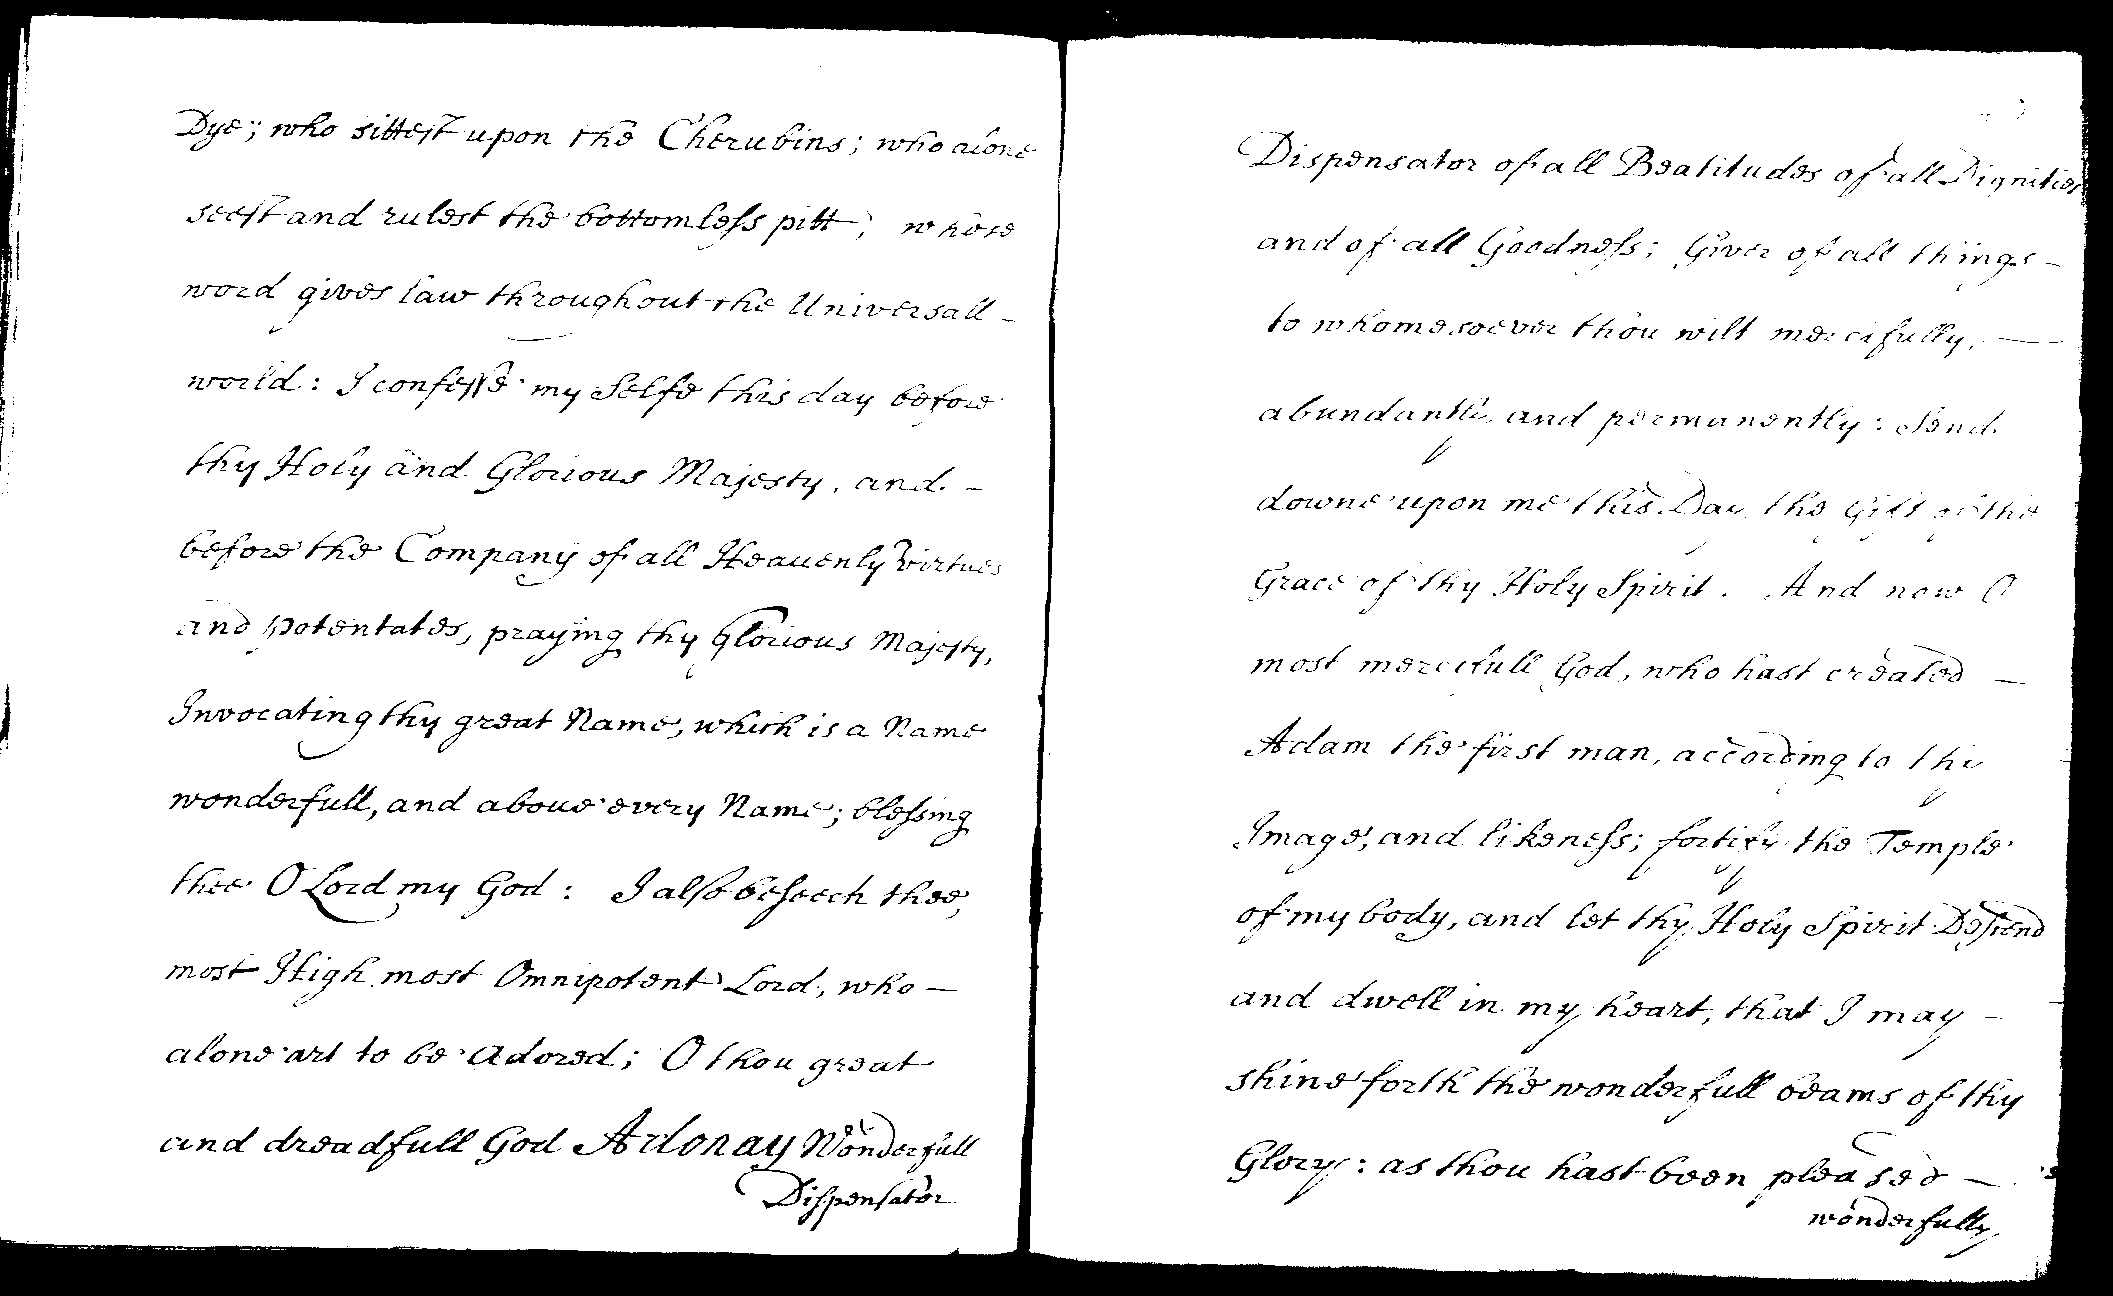 Dye; who sittest upon the Cherubins; who alone
seest and rulest the bottomless pitt; whose
word gives law throughout the Universall -
world: I confesse my Selfe this day before
thy Holy and Glorious Majesty, and -
before the Company of all Heauenly virtues
and Potentates, praying thy Glorious Majesty,
Invocating thy great Name, which is a Name
wonderfull, and aboue every Name; blessing
thee O Lord my God: I also beseech thee,
most High most Omnipotent Lord, who -
alone art to be Adored; O thou great
and dreadfull God Adonay Wonderfull
Dispensator
Dispensator of all Beatitudes of all Dignities
and of all Goodness; Giver of all things -
to whomesoever thou wilt mercifully, -
abundantly and permanently: Send
downe upon me this Day the Gift of the
Grace of thy Holy Spirit. And now O
most mercifull God, who hast created -
Adam the first man, according to thy
Image, and likeness; fortify the Temple
of my body, and let thy Holy Spirit Descend
and dwell in my heart, that I may -
shine forth the wonderfull beams of thy
Glory: as thou hast been pleased -
wonderfully